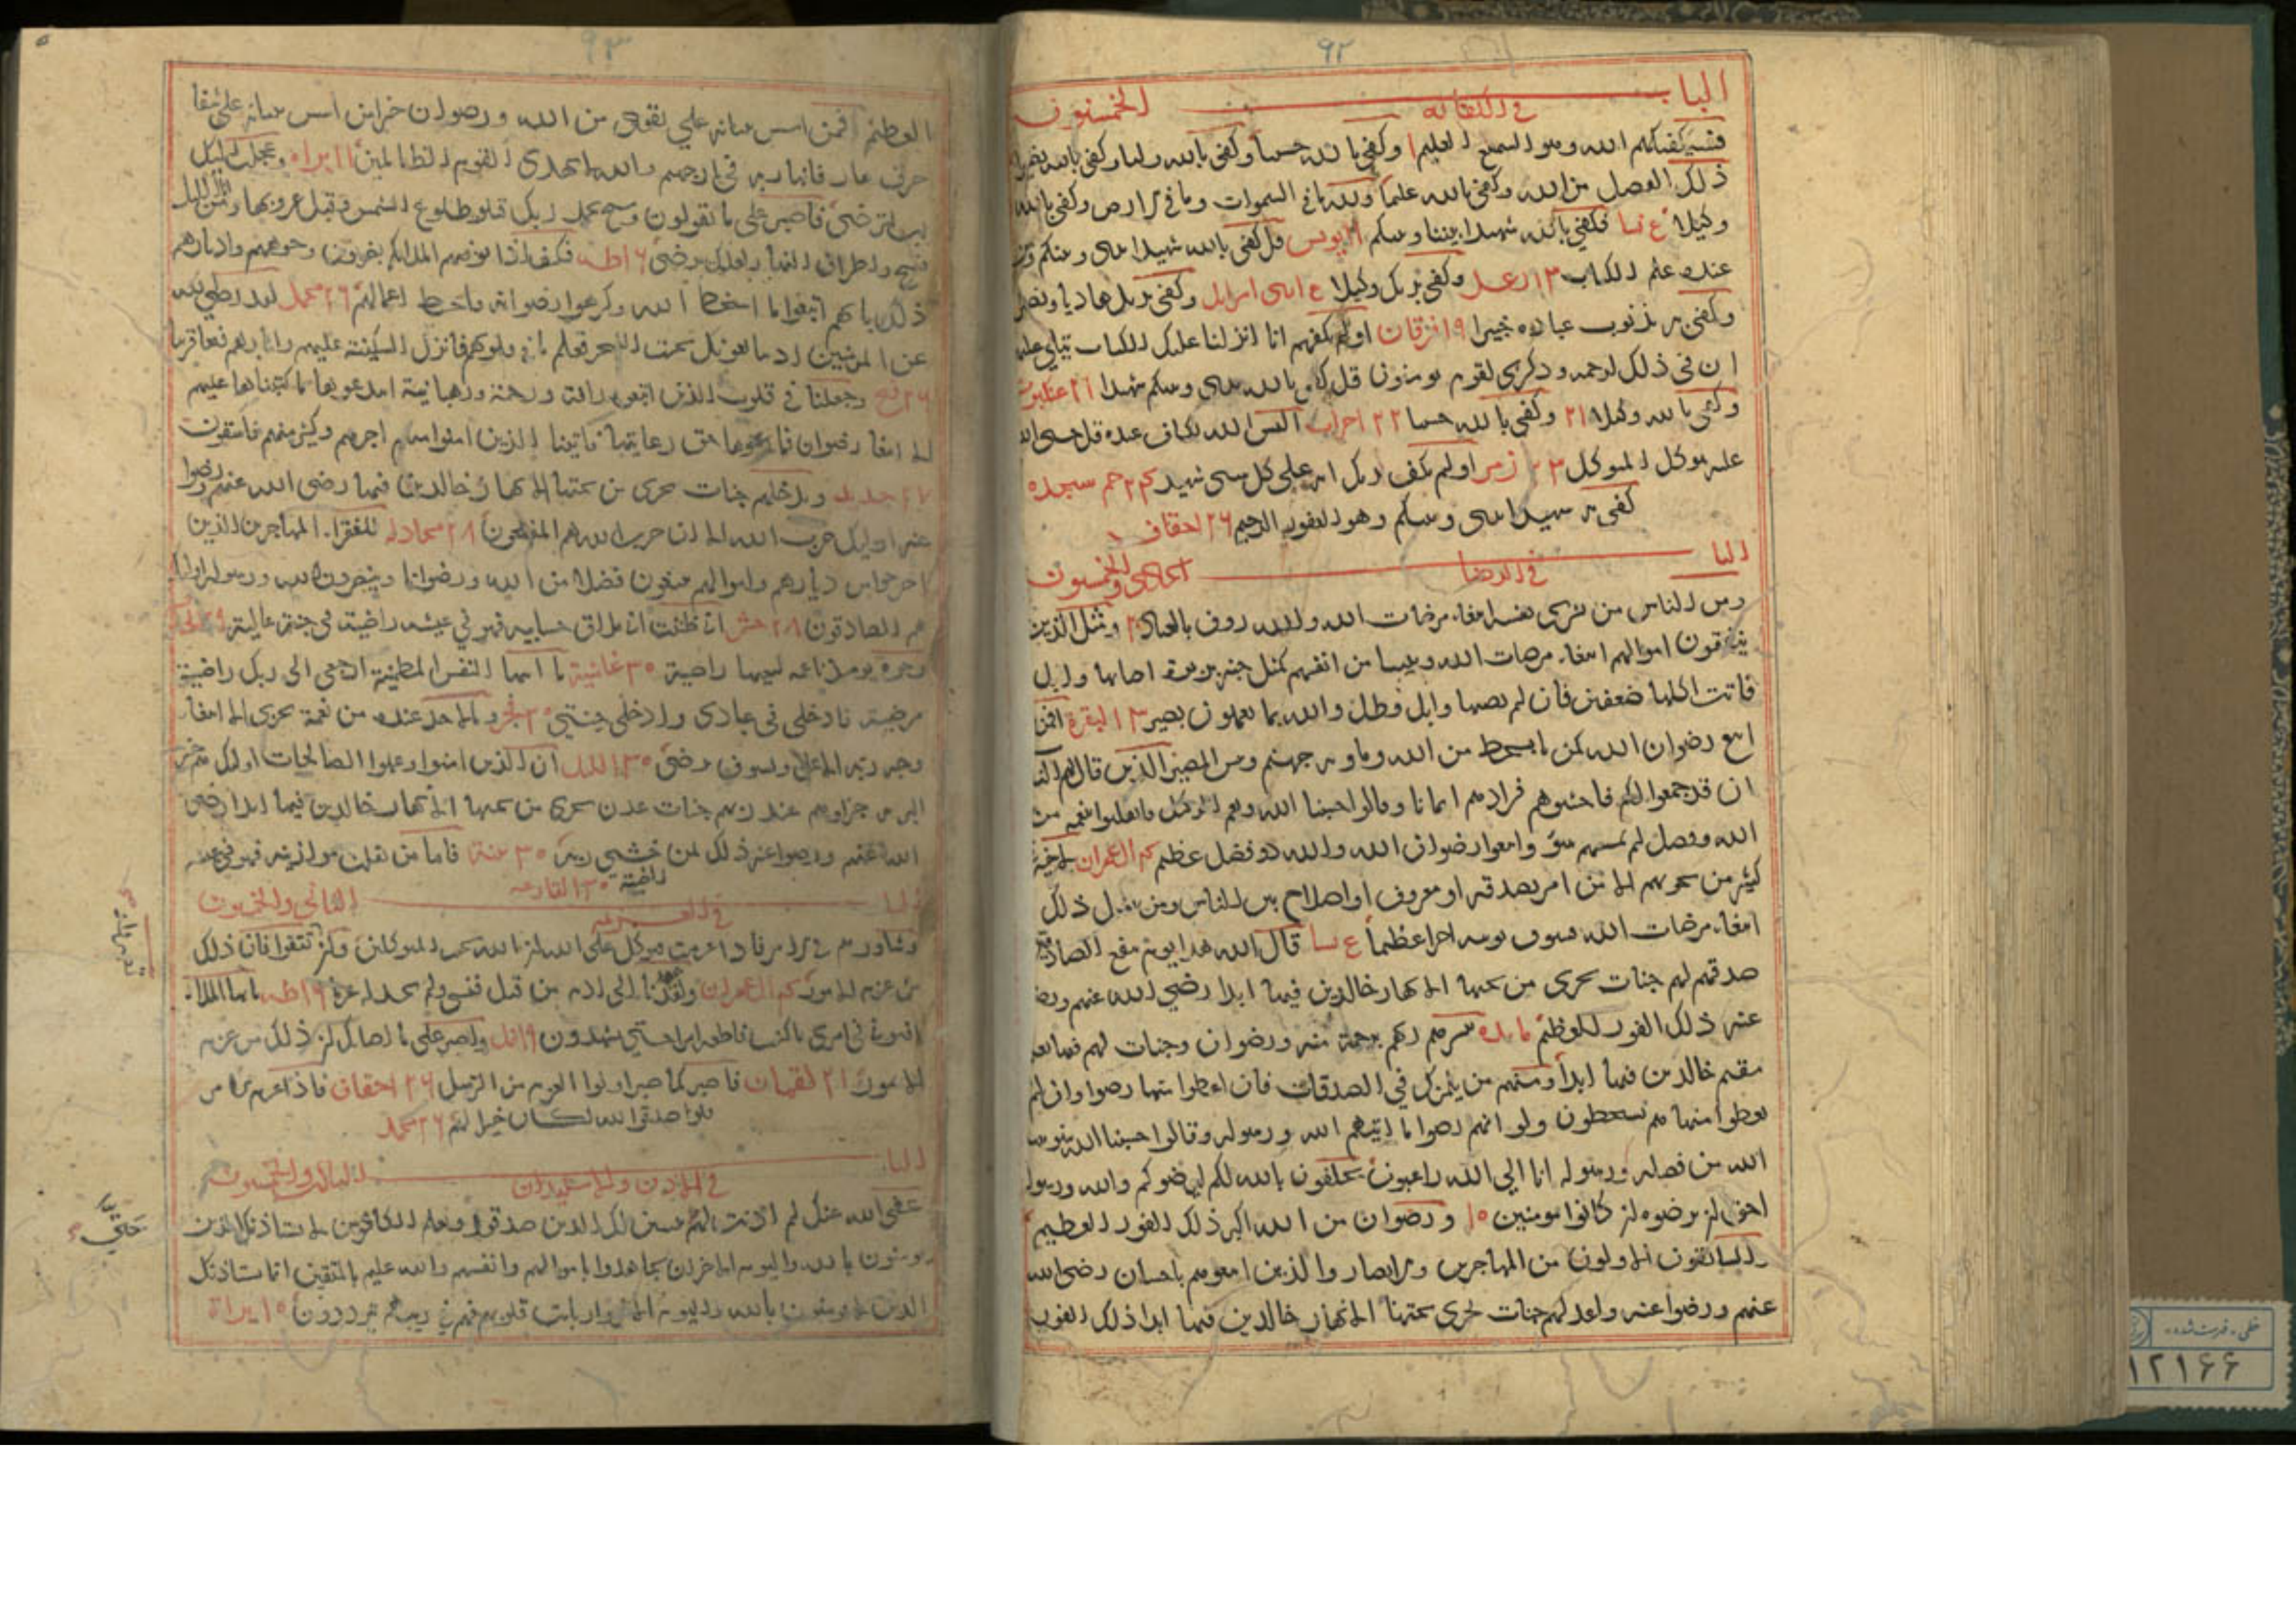 ٩٢
الباب في الكفاية الخمسون
فسيكفيكهم الله وهو السميع العليم ا وكفى بالله حسيبا وكفى بالله وليا وكفى بالله نصيرا
ذلك الفضل من الله وكفى بالله عليما ولله ما في السموات وما في الارض وكفى بالله
وكيلا ع نسا فكفى بالله شهيدا بيننا وبينكم ١١ يونس قل كفى بالله شهيدا بيني وبينكم ومن
عنده علم الكتاب ١٣ رعد وكفى بربك وكيلا ع اسرى اسرايل وكفى بربك هاديا ونصيرا
وكفى به بذنوب عباده خبيرا ١٩ فرقان اولم يكفهم انا انزلنا عليك الكتاب يتلى عليهم
ان في ذلك لرحمة وذكرى لقوم يومنون قل كفى بالله بيني وبينكم شهيدا ٢١ عنكبوت
وكفى بالله وكيلا ٢١ وكفى بالله حسيبا ٢٢ احزاب اليس الله بكاف عبده قل حسبي الله
عليه يتوكل المتوكل ٢٣ زمر اولم يكف بربك انه على كل شي شهيد ٢٤ حم سجده
كفى به شهيدا بيني وبينكم وهو الغفور الرحيم ٢٦ احقاف
البا في الرضا الحادي والخمسون
ومن الناس من يشري نفسه ابتغاء مرضات الله والله روف بالعباد ٢ ومثل الذين
ينفقون اموالهم ابتغاء مرضات الله وتثبيتا من انفسهم كمثل جنة بربوة اصابها وابل
فاتت اكلها ضعفين فان لم يصبها وابل فطل والله بما تعملون بصير ٣ البقرة افمن
اتبع رضوان الله كمن با بسخط من الله وماويه جهنم وبئس المصير الذين قال لهم الناس
ان قد جمعوا لكم فاخشوهم فزادهم ايمانا وقالوا حسبنا الله ونعم الوكيل فانقلبوا بنعمة من
الله وفضل لم يمسسهم سؤ واتبعوا رضوان الله والله ذو فضل عظيم ٤ ال عمران لا خير في
كثير من نجويهم الا من امر بصدقة او معروف او اصلاح بين الناس ومن يفعل ذلك
ابتغاء مرضات الله فسوف نوتيه اجرا عظيما ع نسا قال الله هذا يوم ينفع الصادقين
صدقهم لهم جنات تجري من تحتها الانهار خالدين فيها ابدا رضي الله عنهم ورضوا
عنه ذلك الفوز العظيم مايده يبشرهم ربهم برحمة منه ورضوان وجنات لهم فيها نعيم
مقيم خالدين فيها ابدا ومنهم من يلمزك في الصدقات فان اعطوا منها رضوا وان لم
يعطوا منها هم يسخطون ولو انهم رضوا ما اتيهم الله ورسوله وقالوا حسبنا الله سيوتينا
الله من فضله ورسوله انا الى الله راغبون يحلفون بالله لكم ليرضوكم والله ورسوله
احق ان يرضوه ان كانوا مومنين ١٠ ورضوان من الله اكبر ذلك الفوز العظيم
السابقون الاولون من المهاجرين والانصار والذين اتبعوهم باحسان رضي الله
عنهم ورضوا عنه واعد لهم جنات تجري تحتها الانهار خالدين فيها ابدا ذلك الفوز
٩٣
العظيم افمن اسس بنيانه على تقوى من الله ورضوان خير امن اسس بنيانه على شفا
جرف هار فانهار به في نار جهنم والله لا يهدي القوم الظالمين ١١ براه وعجلت اليك
رب لترضى فاصبر على ما يقولون وسبح بحمد ربك قبل طلوع الشمس وقبل غروبها ومن انا الليل
فسبح واطراف النهار لعلك ترضى ١٦ طه فكيف اذا توفتهم الملايكه يضربون وجوههم وادبارهم
ذلك بانهم اتبعوا ما اسخط الله وكرهوا رضوانه فاحبط اعمالهم ٢٦ محمد لقد رضي الله
عن المومنين اذ يبايعونك تحت الشجرة فعلم ما في قلوبهم فانزل السكينة عليهم واثابهم فتحا قريبا
٢٦ فتح وجعلنا في قلوب الذين اتبعوه رافة ورحمة ورهبانية ابتدعوها ما كتبناها عليهم
الا ابتغا رضوان الله فما رعوها حق رعايتها فاتينا الذين امنوا منهم اجرهم وكثير منهم فاسقون
٢٧ حديد ويدخلهم جنات تجري من تحتها الانهار خالدين فيها رضي الله عنهم ورضوا
عنه اوليك حزب الله الا ان حزب الله هم المفلحون ٢٨ مجادله للفقرا المهاجرين الذين
اخرجوا من ديارهم واموالهم يبتغون فضلا من الله ورضوانا وينصرون الله ورسوله اوليك
هم الصادقون ٢٨ حشر اني ظننت اني ملاق حسابيه فهو في عيشة راضية في جنة عالية ٢٩
وجوه يومئذ ناعمه لسعيها راضية ٣٠ غاشية يا ايتها النفس المطمئنة ارجعي الى ربك راضية
مرضية فادخلي في عبادي وادخلي جنتي ٣٠ فجر وما لاحد عنده من نعمة تجزى الا ابتغاء
وجه ربه الاعلى ولسوف يرضى ٣٠ الليل ان الذين امنوا وعملوا الصالحات اوليك هم خير
البريه جزاوهم عند ربهم جنات عدن تجري من تحتها الانهار خالدين فيها ابدا رضي
الله عنهم ورضوا عنه ذلك لمن خشي ربه ٣٠ بينة فاما من ثقلت موازينه فهو في عيشة
راضية ٣٠ القارعه
البا في العزيمة الثاني والخمسون
وشاورهم في الامر فاذا عزمت فتوكل على الله ان الله يحب المتوكلين وان تتقوا فان ذلك
من عزم الامور ٤ ال عمران ولقد عهدنا الى ادم من قبل فنسي ولم نجد له عزما ١٦ طه يا ايها الملا
افتوني في امري ما كنت قاطعة امرا حتى تشهدون ١٩ نمل واصبر على ما اصابك ان ذلك من عزم
الامور ٢١ لقمان فاصبر كما صبر اولوا العزم من الرسل ٢٦ احقاف فاذا عزم الامر
فلو صدقوا الله لكان خيرا لهم ٢٦ محمد
البا في الاذن والاستيذان الثالث والخمسون
عفى الله عنك لم اذنت لهم حتى يتبين لك الذين صدقوا وتعلم الكاذبين لا يستاذنك الذين
يومنون بالله واليوم الاخر ان يجاهدوا باموالهم وانفسهم والله عليم بالمتقين انما يستاذنك
الذين لا يومنون بالله واليوم الاخر وارتابت قلوبهم فهم في ريبهم يترددون ١٠ براة
خطی - فهرست شده
١٢١٦۶